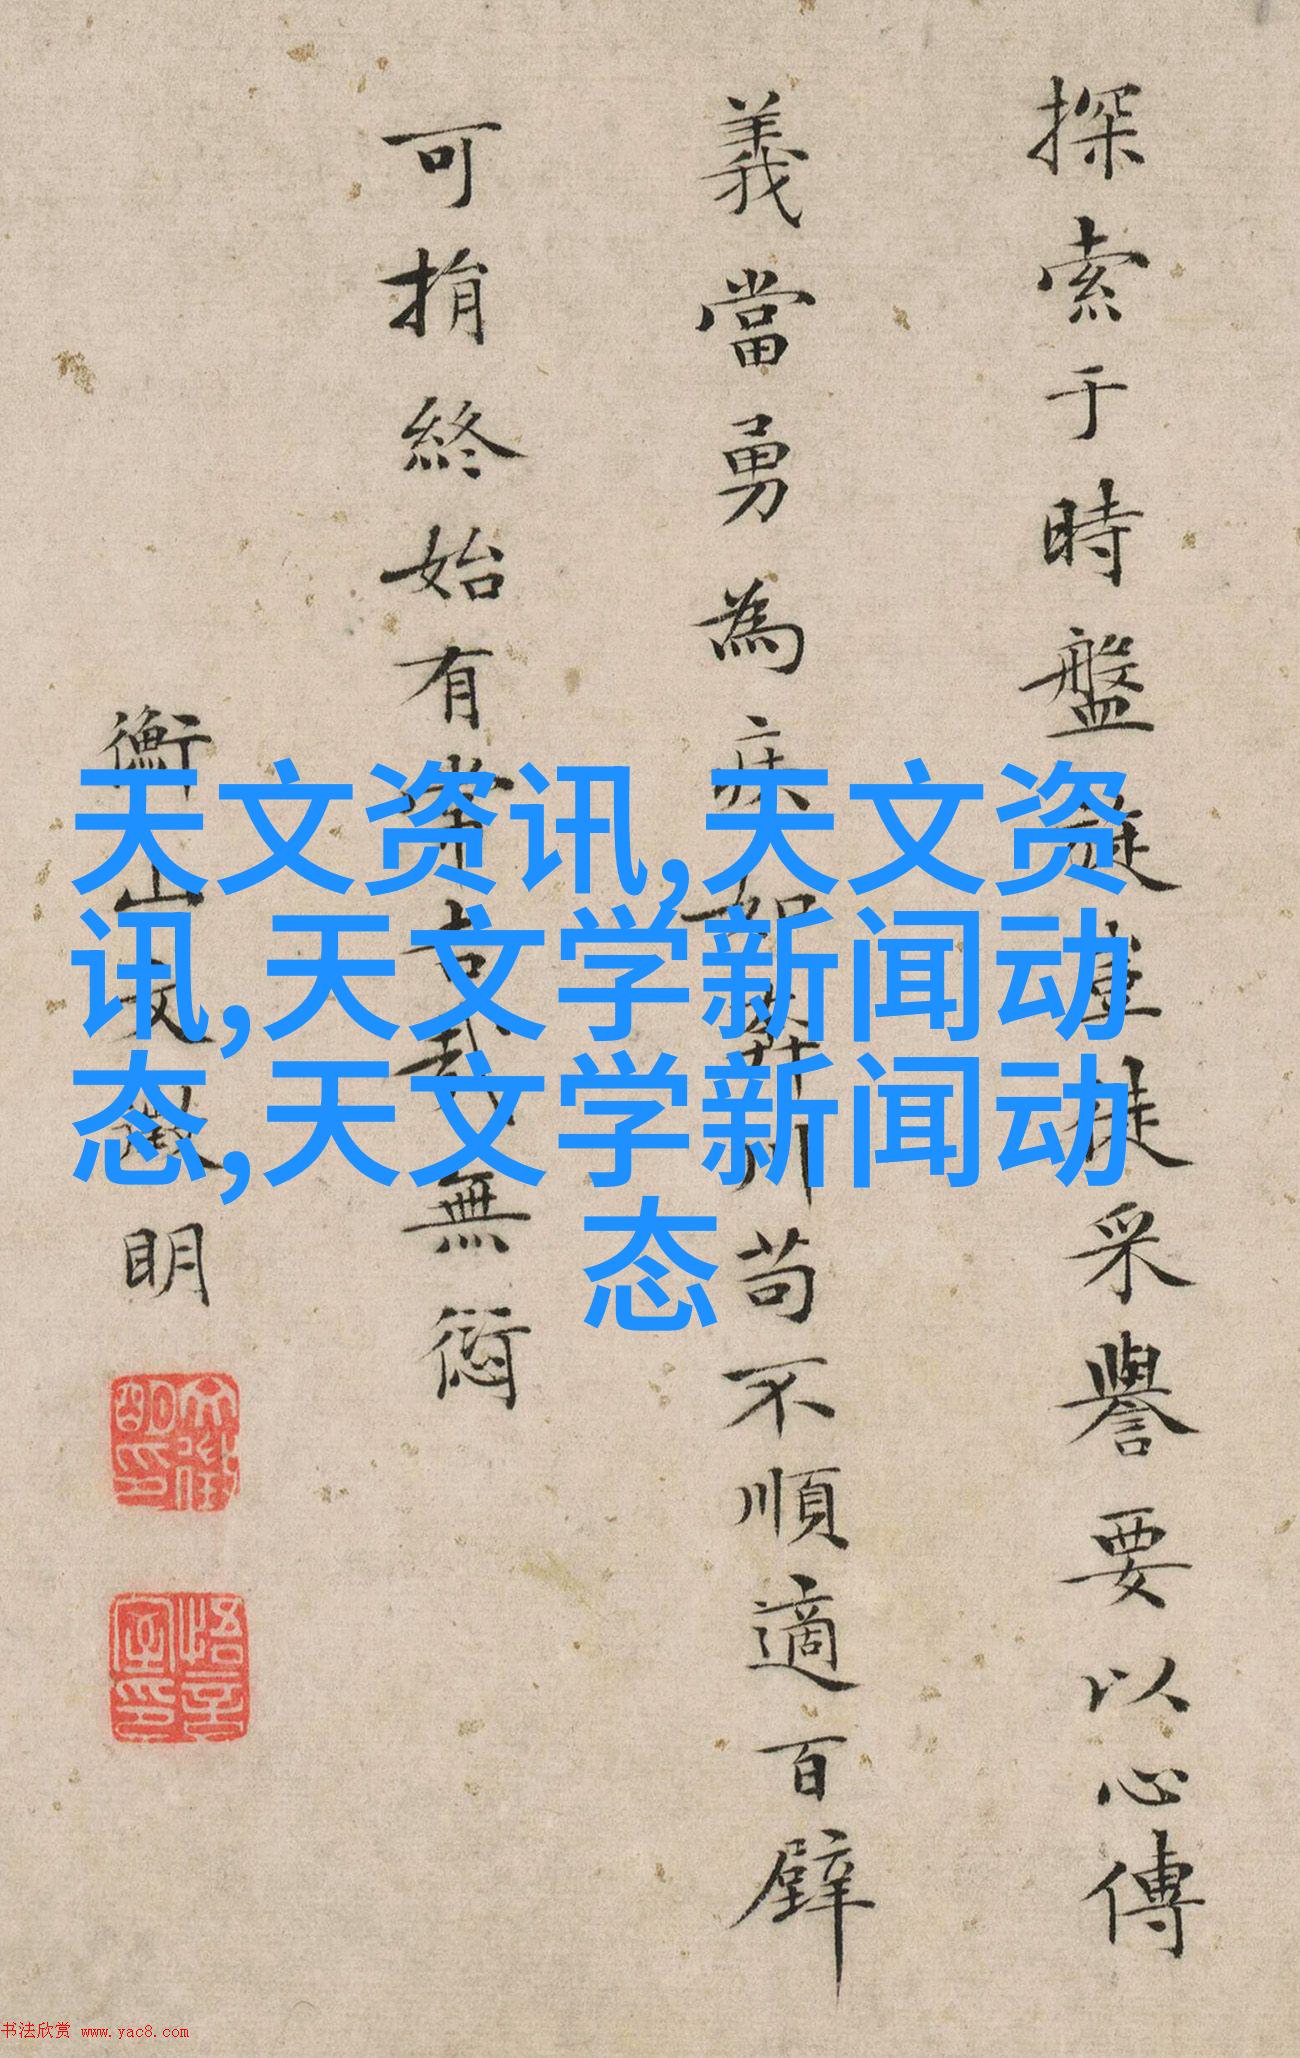 探索于時盤旋臺徒采譽要以心傳
義當勇為疾如奔川苟不順適百
可捐終始有常古戒無愆
衡山文徵明
天文资讯,天文资
讯,天文学新闻动
态,天文学新闻动
态
书法欣赏 www.yac8.com